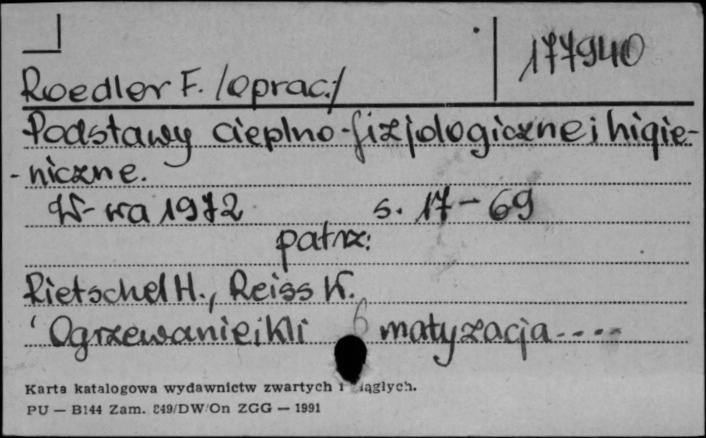 177940
Roedler F. /oprac./
Podstawy cieplno-fizjologiczne i higie-
-niczne.
W-wa 1972 s. 17-69
patrz:
Rietschel H., Reiss K.
Ogrzewanie i kli matyzacja....
Karta katalogowa wydawnictw zwartych i ciągłych.
PU — B144 Zam. 849/DW/On ZGG — 1991